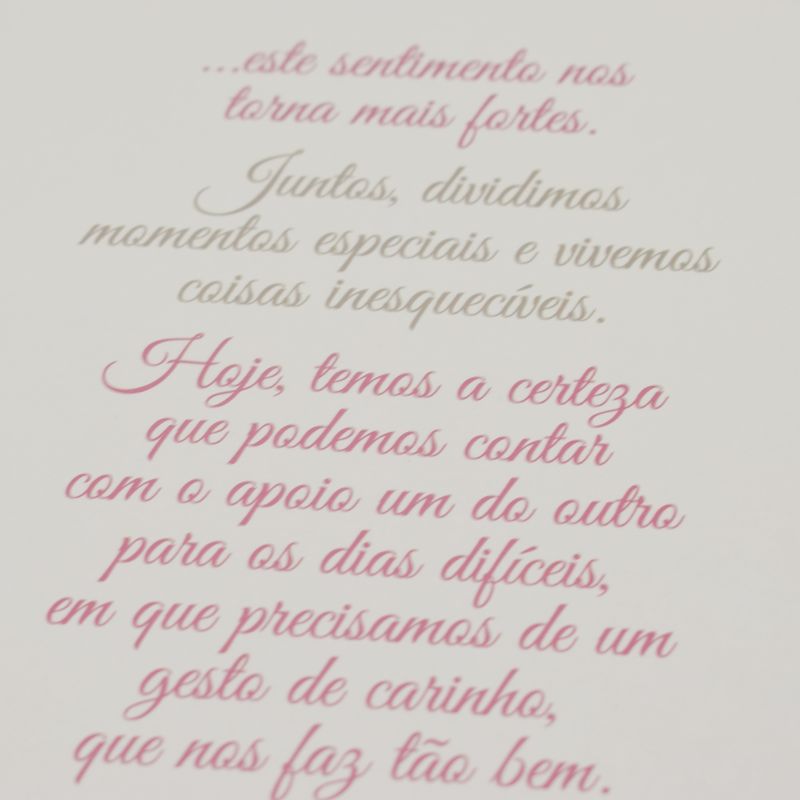 ...este sentimento nos
torna mais fortes.
Juntos, dividimos
momentos especiais e vivemos
coisas inesquecíveis.
Hoje, temos a certeza
que podemos contar
com o apoio um do outro
para os dias difíceis,
em que precisamos de um
gesto de carinho,
que nos faz tão bem.